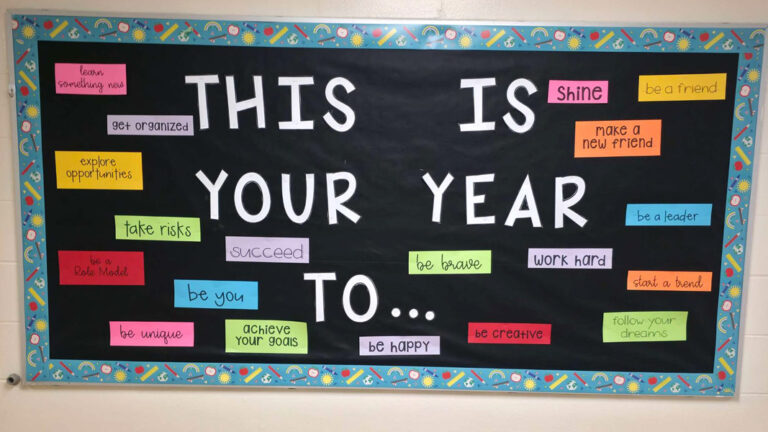 THIS IS
YOUR YEAR
TO...
learn
something new
get organized
explore
opportunities
take risks
succeed
be a
Role Model
be you
be unique
achieve
your goals
be happy
be brave
work hard
be creative
shine
be a friend
make a
new friend
be a leader
start a trend
follow your
dreams